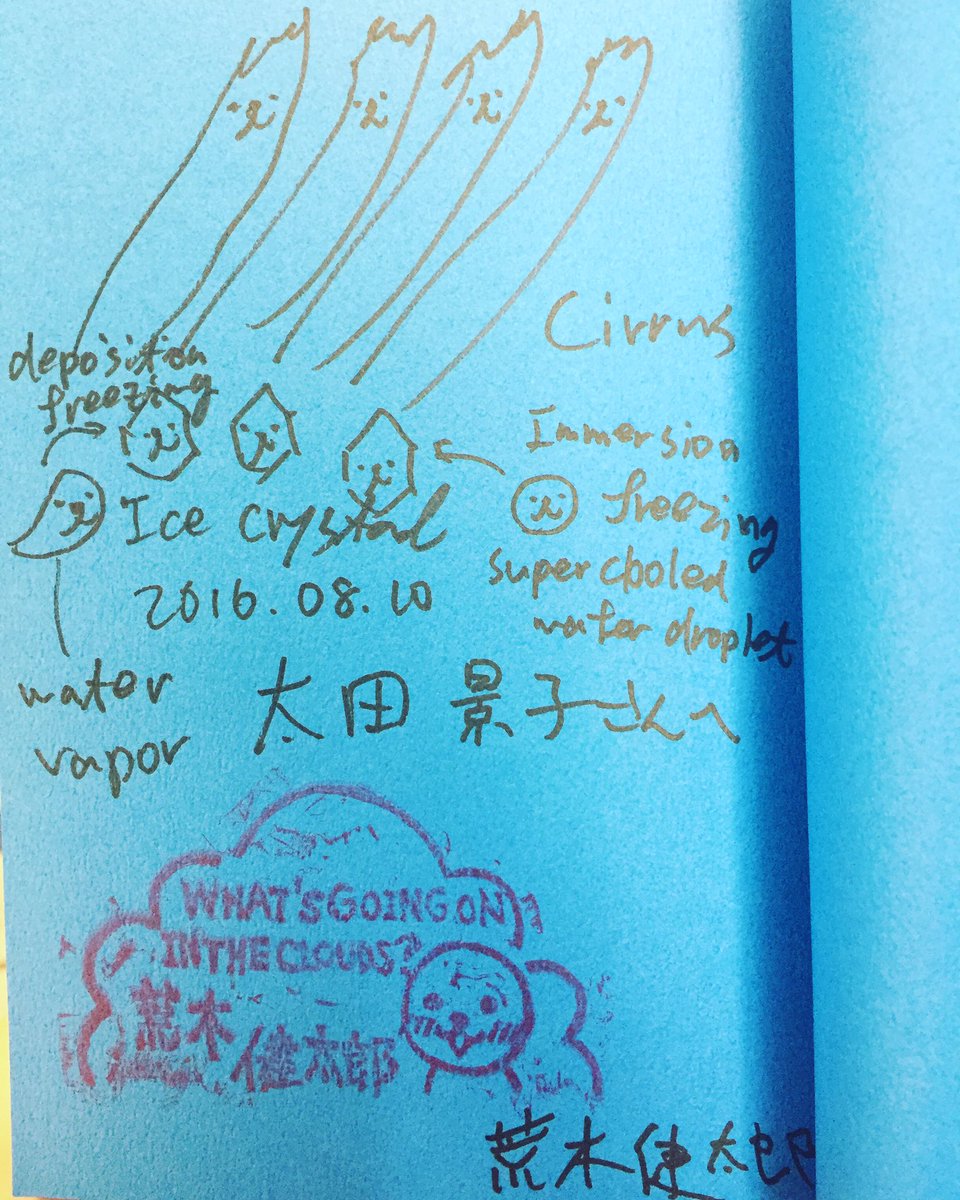 Cirrus
deposition
freezing
Immersion
freezing
Ice crystal
supercooled
water droplet
2016.08.10
water
vapor
太田 景子さんへ
WHAT'S GOING ON
IN THE CLOUDS?
荒木
健太郎
荒木健太郎